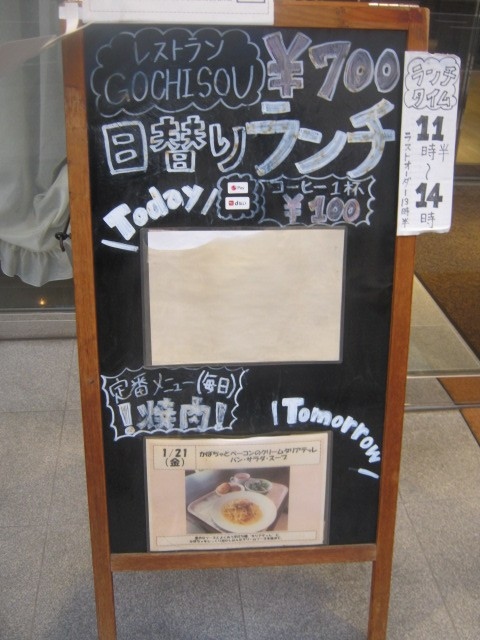 レストラン
GOCHISOU
¥700
ランチ
タイム
11
時半
〜
14
時
ラストオーダー13時半
日替りランチ
Today
Pay
d払い
コーヒー1杯
¥100
定番メニュー(毎日)
!焼肉!
Tomorrow
1/21
(金)
かぼちゃとベーコンのクリームタリアテッレ
パン・サラダ・スープ